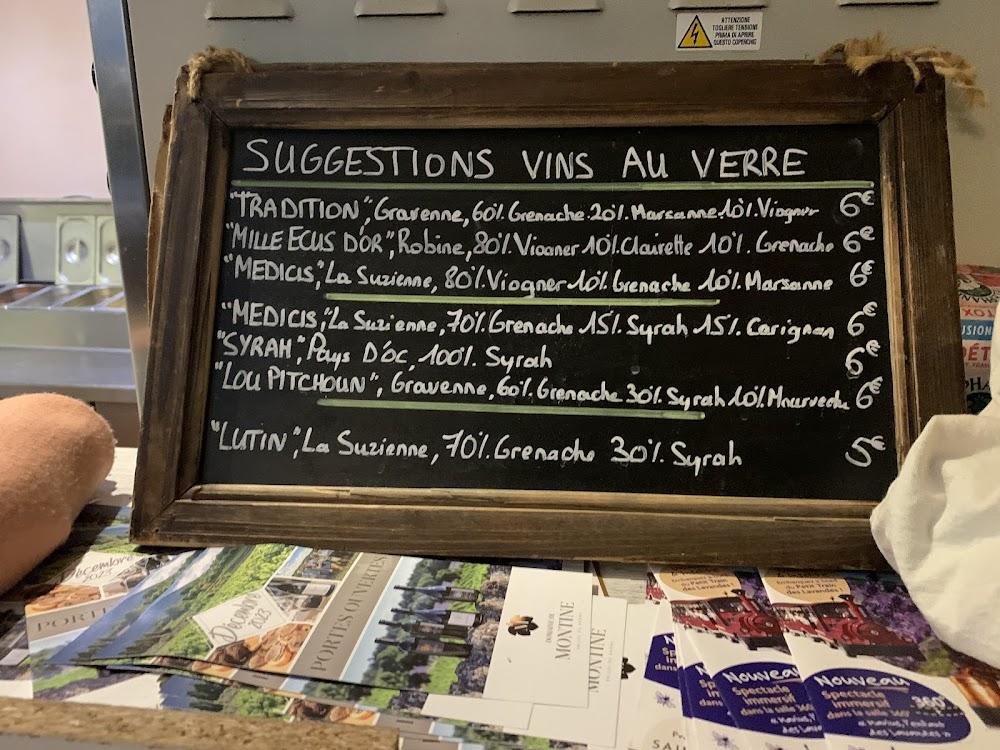 ATTENZIONE
TOGLIERE TENSIONE
PRIMA DI APRIRE
QUESTO COPERCHIO
SUGGESTIONS VINS AU VERRE
"TRADITION", Gravenne, 60% Grenache 20% Marsanne 10% Viogner 6€
"MILLE ECUS D'OR", Robine, 80% Viogner 10% Clairette 10% Grenache 6€
"MEDICIS", La Suzienne, 80% Viogner 10% Grenache 10% Marsanne 6€
"MEDICIS", La Suzienne, 70% Grenache 15% Syrah 15% Carignan 6€
"SYRAH", Pays D'oc, 100% Syrah 6€
"LOU PITCHOUN", Gravenne, 60% Grenache 30% Syrah 10% Mourvedre 6€
"LUTIN", La Suzienne, 70% Grenache 30% Syrah 5€
Décembre
2023
PORTES
Décembre
2023
PORTES OUVERTES
DOMAINE DE
MONTINE
MONTINE
du Petit Train
des Lavandes !
Nouveau
Spectacle
immersif
dans la salle 360°
Nouveau
Spectacle
immersif
dans la salle 360°
360°